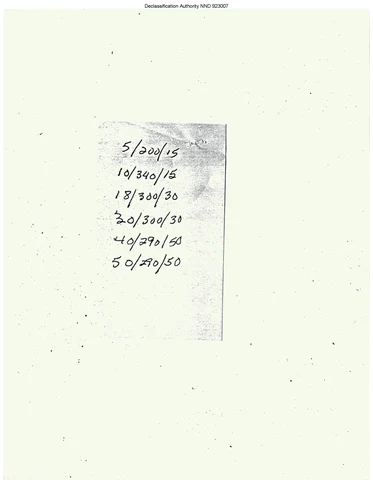 Declassification Authority NND 923007
5/200/15
10/340/15
18/300/30
30/300/30
40/290/50
50/290/50